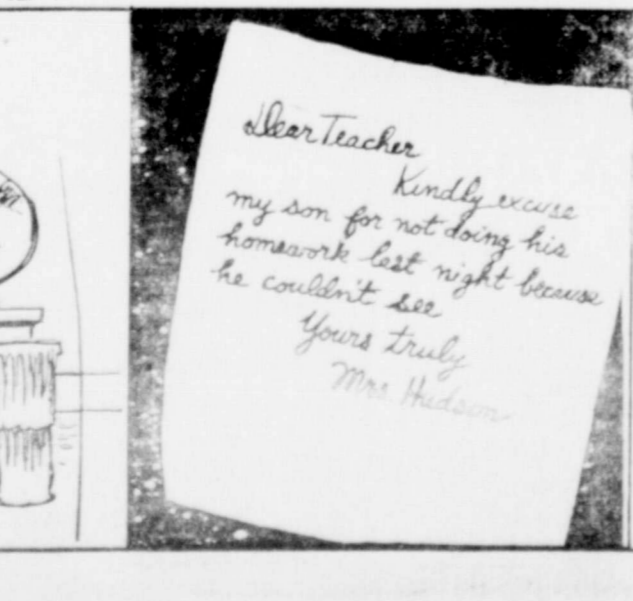 Dear Teacher
Kindly excuse
my son for not doing his
homework last night because
he couldn't see
Yours truly
Mrs Hudson